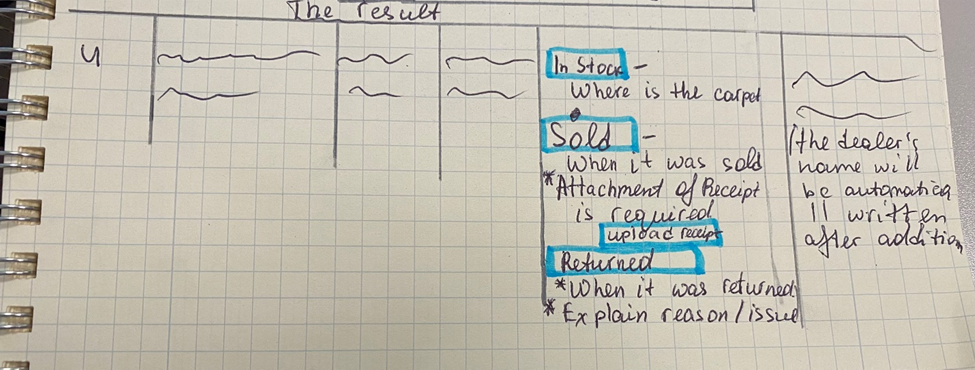 The result
4
In Stock -
Where is the carpet
Sold -
When it was sold
*Attachment of Receipt
is required
upload receipt
Returned
*When it was returned
* Explain reason/issue
(the dealer's
name will
be automatica
ll written
after addition